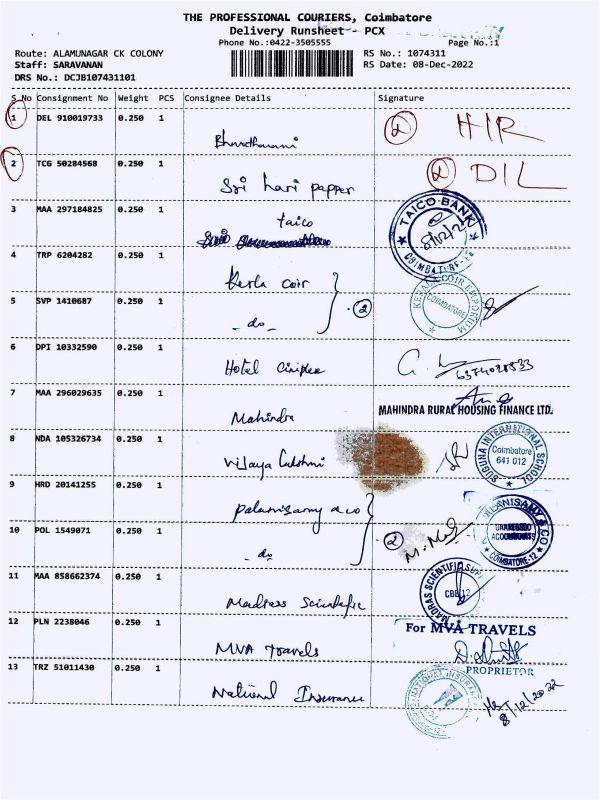 THE PROFESSIONAL COURIERS, Coimbatore
Delivery Runsheet - PCX
Phone No.:0422-3505555 Page No.:1
Route: ALAMUNAGAR CK COLONY RS No.: 1074311
Staff: SARAVANAN RS Date: 08-Dec-2022
DRS No.: DCJB107431101
S No Consignment No Weight PCS Consignee Details Signature
1 DEL 910019733 0.250 1
HIR
2 TCG 50284568 0.250 1
DIL
Sri hari papper
3 MAA 297184825 0.250 1 taico
TAICO BANK
8/12/22
COIMBATORE-12
4 TRP 6204282 0.250 1
Kerla Coir
KERALA COIR EMPORIUM
COIMBATORE
5 SVP 1410687 0.250 1
2
- do -
6 DPI 10332590 0.250 1
Hotel
6374028533
7 MAA 296029635 0.250 1
Mahindra
MAHINDRA RURAL HOUSING FINANCE LTD.
8 NDA 105326734 0.250 1
Vijaya Lakshmi
SUGUNA INTERNATIONAL SCHOOL
Coimbatore
641 012
9 HRD 20141255 0.250 1
palanisamy & co
PALANISAMY & CO
ACCOUNTANTS
COIMBATORE-12
10 POL 1549071 0.250 1
2
- do -
11 MAA 858662374 0.250 1
Madras Scientific
MADRAS SCIENTIFIC
CBE-12
12 PLN 2238046 0.250 1
MVA Travels
For MVA TRAVELS
PROPRIETOR
13 TRZ 51011430 0.250 1
National Insurance
NATIONAL INSURANCE
8/12/2022